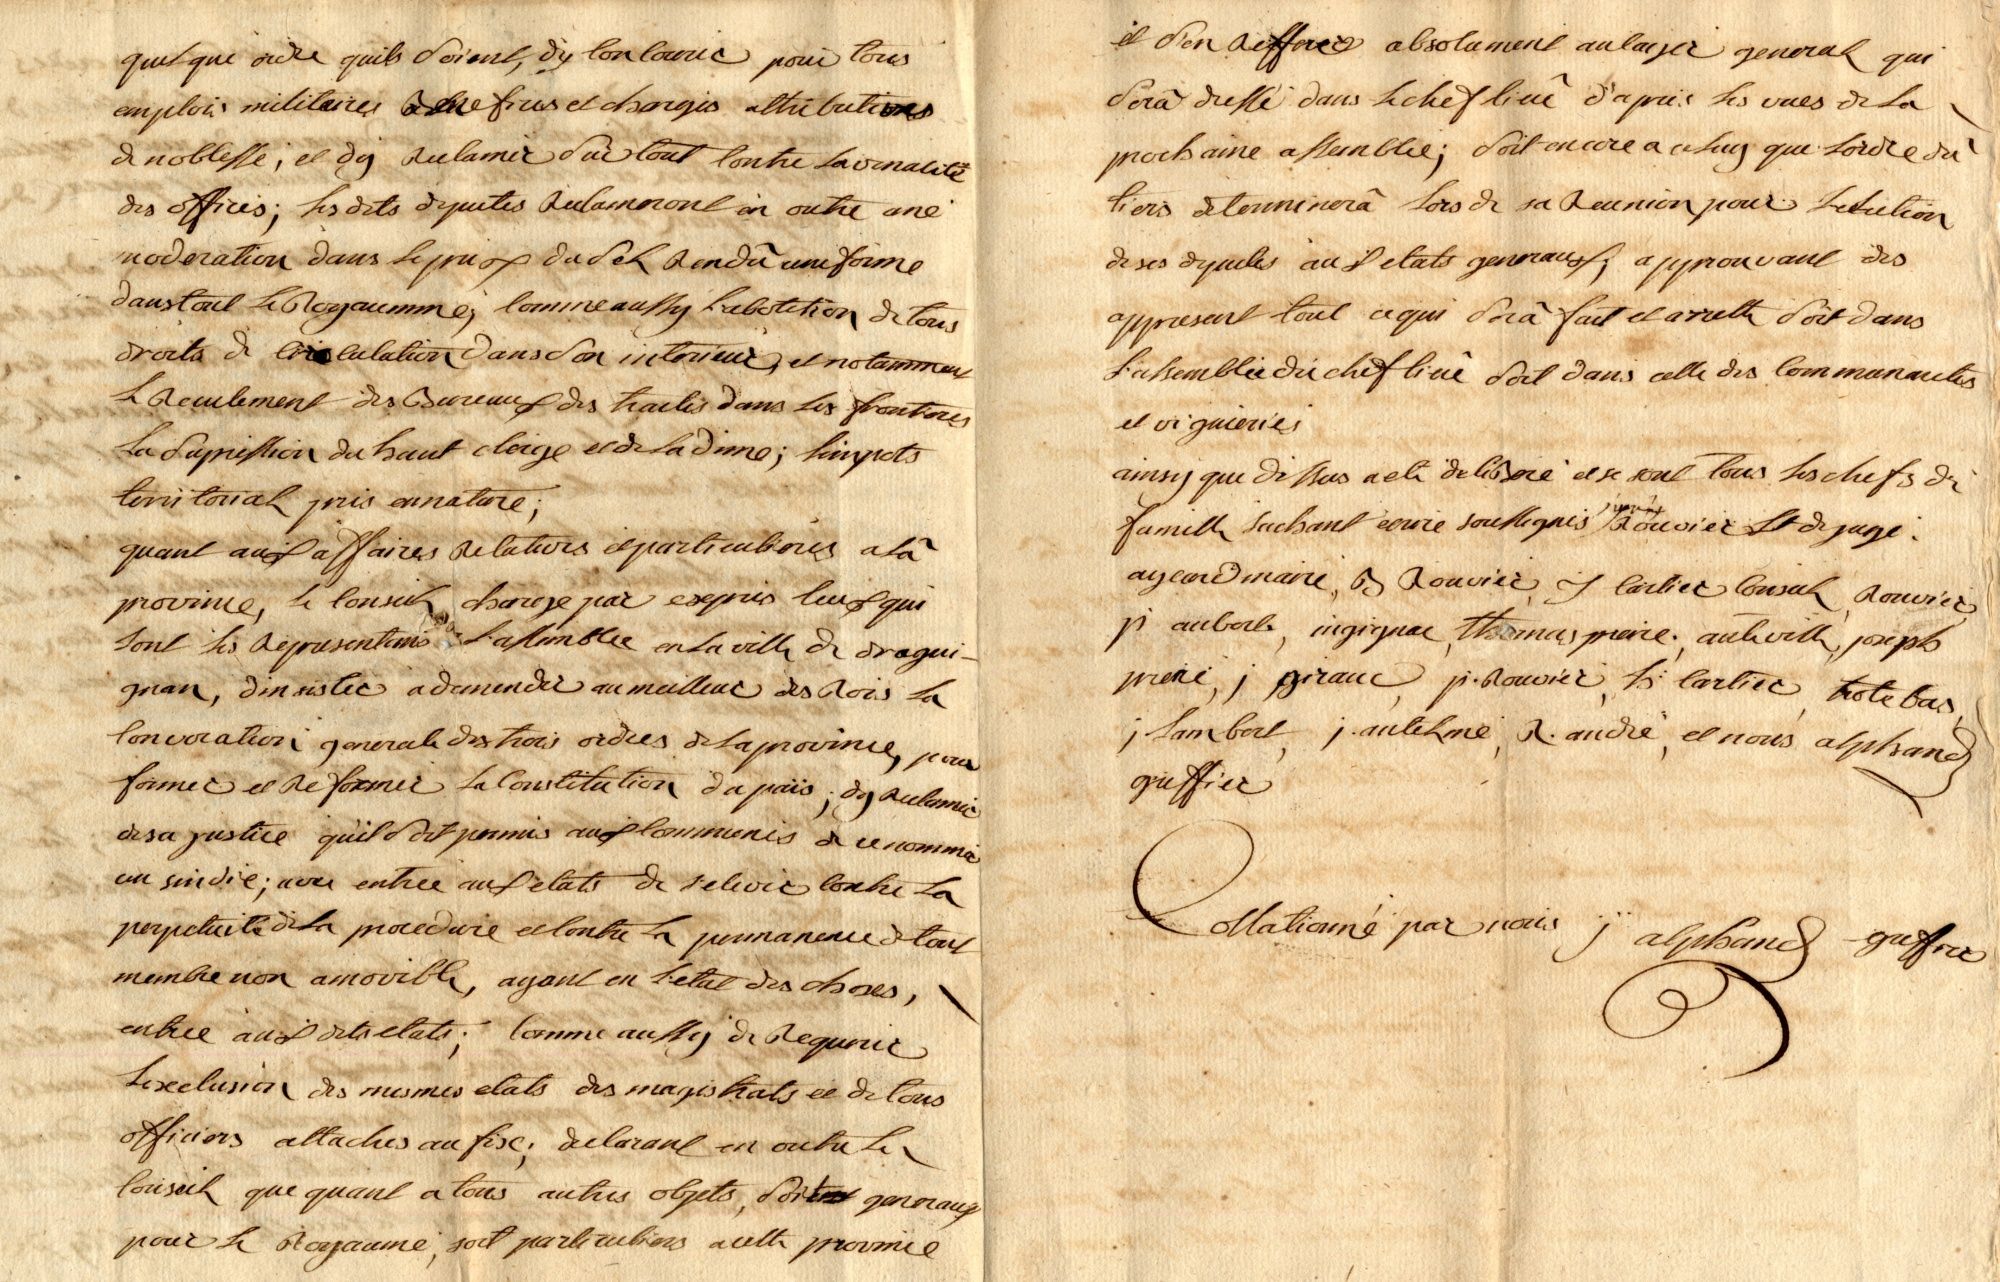 quelque ordre quils soient, dy concourir pour tous
emplois militaires benefices et charges attributives
de noblesse; et dy reclamer surtout contre la venalité
des offices; les dits deputes reclameront en outre une
moderation dans le prix du sel rendû uniforme
dans tout le Royaumme; comme aussy l'abolition de tous
droits de circulation dans son interieur, et notamment
le reculement des Bureaux des traites dans les frontieres
la supression du haut clerge et de la dime; l'impots
territorial pris en nature;
quant aux affaires relatives et particulieres a la
province, le conseil charge par expres ceux qui
sont les representans a l'assemblée en la ville de dragui-
gnan, d'insister a demender au meilleur des Rois la
convocation generale des trois ordres de la province, pour
former et reformer la Constitution du païs; dy reclamer
de sa justice qu'il soit permis aux communes de ce nommer
un sindic; avec entrée aux etats de s'elever contre la
perpetuité de la procedure et contre la permanence de tout
membre non amovible, ayant en l'etat des choses,
entree aux dits etats; comme aussy de requerir
l'exclusion des mesmes etats des magistrats et de tous
officiers attaches au fisc; declarant en outre le
conseil que quant a tous autres objets, soit generaux
pour le Royaume, soit particuliers a cette province
il s'en refferer absolument au cayer general qui
serâ dressé dans le chef lieû d'apres les vues de la
prochaine assemblée; soit encore a celuy que l'ordre du
tiers determinerâ lors de sa reunion pour l'election
de ses deputes aux etats generaux; approuvant des
appresent tout ce qui serâ fait et arretté soit dans
l'assemblée du chef lieû soit dans celle des communautes
et vigueries
ainsy que dessus a eté deliberé et se sont tous les chefs de
famille sachant ecrire soussignes Rouvier Lt de juge
aycard maire, B Rouvier, J Cartier consul, Rouvier
p. aubert, ingignac, thomas preire, anteville, joseph
preire, j giraud, p. Rouvier, h. Cartier, trotebas,
j Lambert, j. antelme, R. andré, et nous alphand
greffier
Collationné par nous j alphand greffier